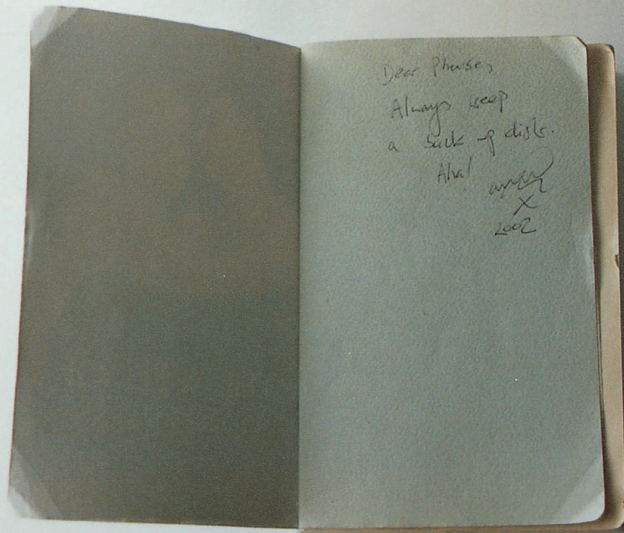 Dear Phruse,
Always keep
a back up disk.
Aha!
X
2002